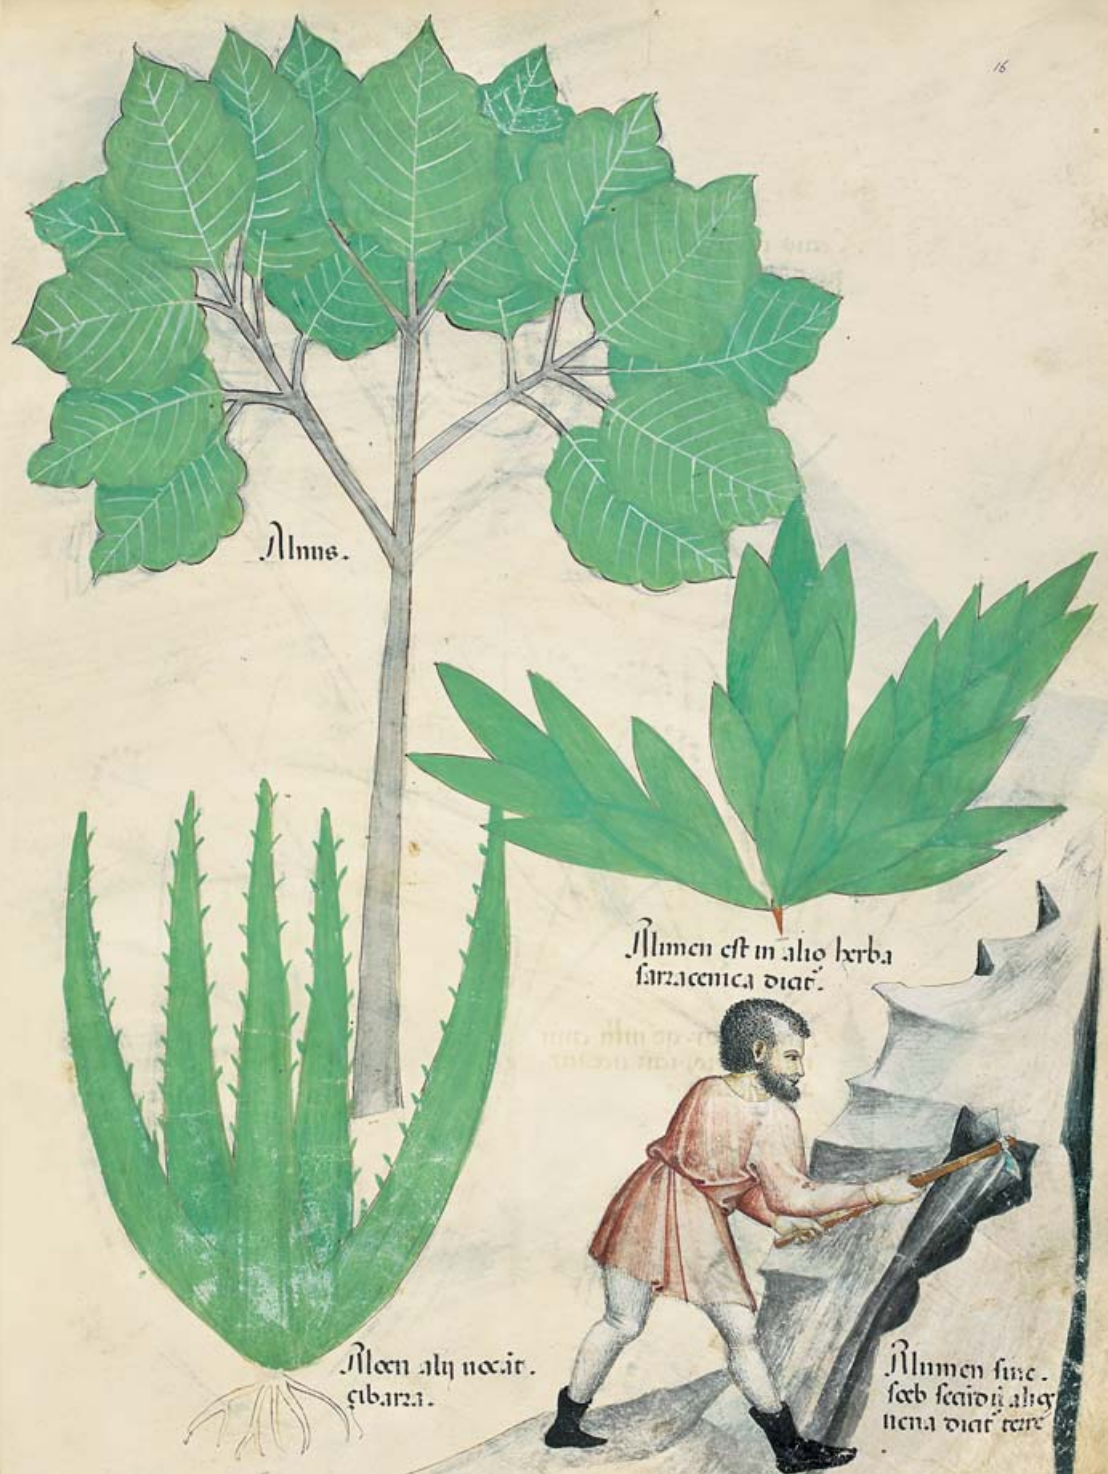 16
Alnus.
Alumen est in alio herba
sarracenica dicit̃.
Aloen alij uocãt.
çibarra.
Alumen siue.
sceb secũdũ alios
uena dicit̃ terre